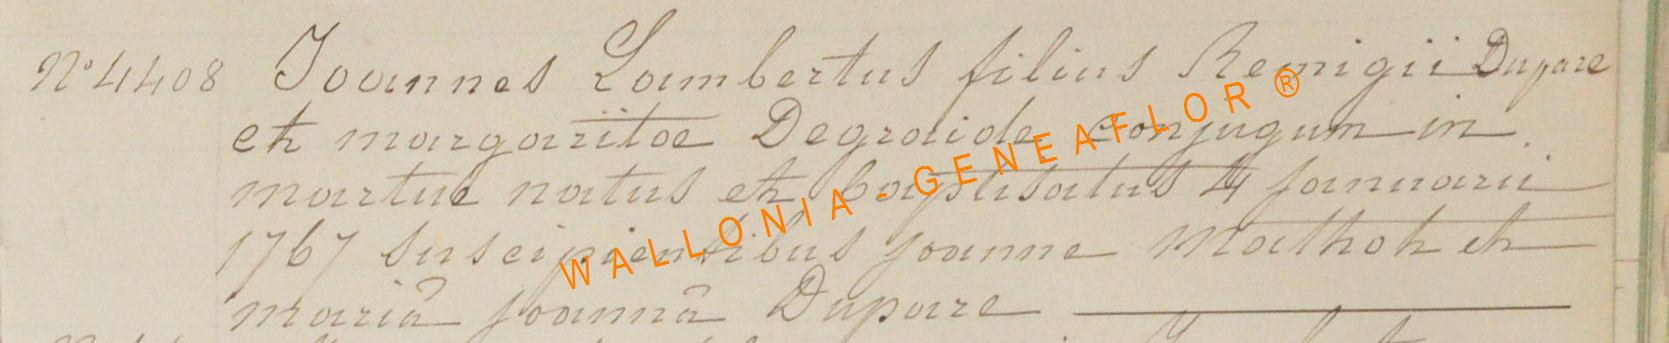 N° 4408 Joannes Lambertus filius Remigii Dupare
et margaritae Degraide conjugum in
martue natus et baptisatus 4 januarii
1767 suscipientibus joanne Mathot et
mariâ joannâ Dupare
WALLONIA - GENEAFLOR ®